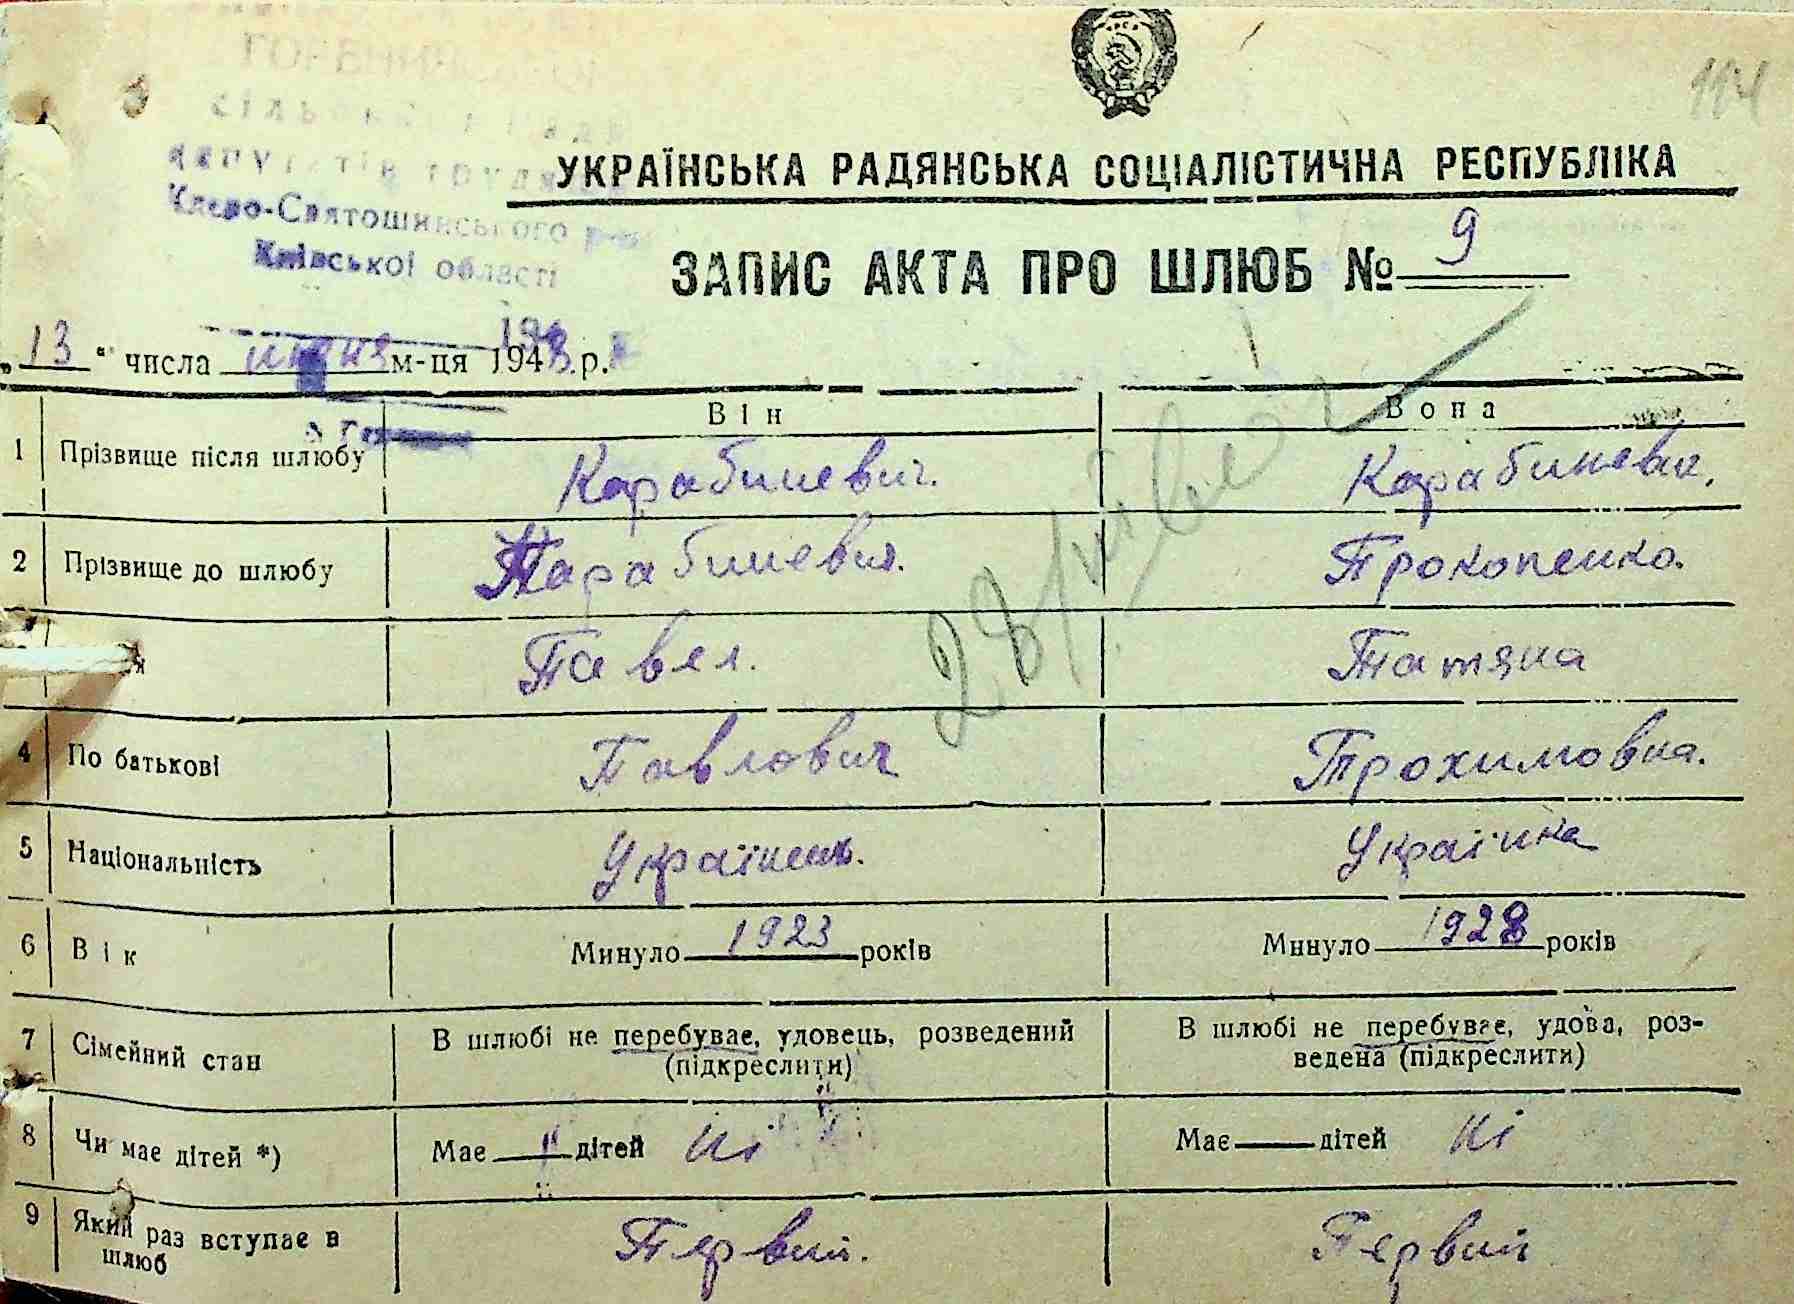 104
сільської ради
депутатів трудя
Києво-Святошинського р-ну
Київської області
УКРАЇНСЬКА РАДЯНСЬКА СОЦІАЛІСТИЧНА РЕСПУБЛІКА
ЗАПИС АКТА ПРО ШЛЮБ № 9
„13“ числа июня м-ця 1948 р.
Він Вона
1 Прізвище після шлюбу Карабиневич. Карабиневич.
2 Прізвище до шлюбу Карабиневич. Прокопенко.
Павел. Татяна
4 По батькові Павлович Трохимовна.
5 Національність Українець. Українка
6 Вік Минуло 1923 років Минуло 1928 років
7 Сімейний стан В шлюбі не перебуває, удовець, розведений (підкреслити) В шлюбі не перебуває, удова, роз-
ведена (підкреслити)
8 Чи має дітей *) Має дітей ні Має дітей ні
9 Який раз вступає в шлюб Первий. Первий